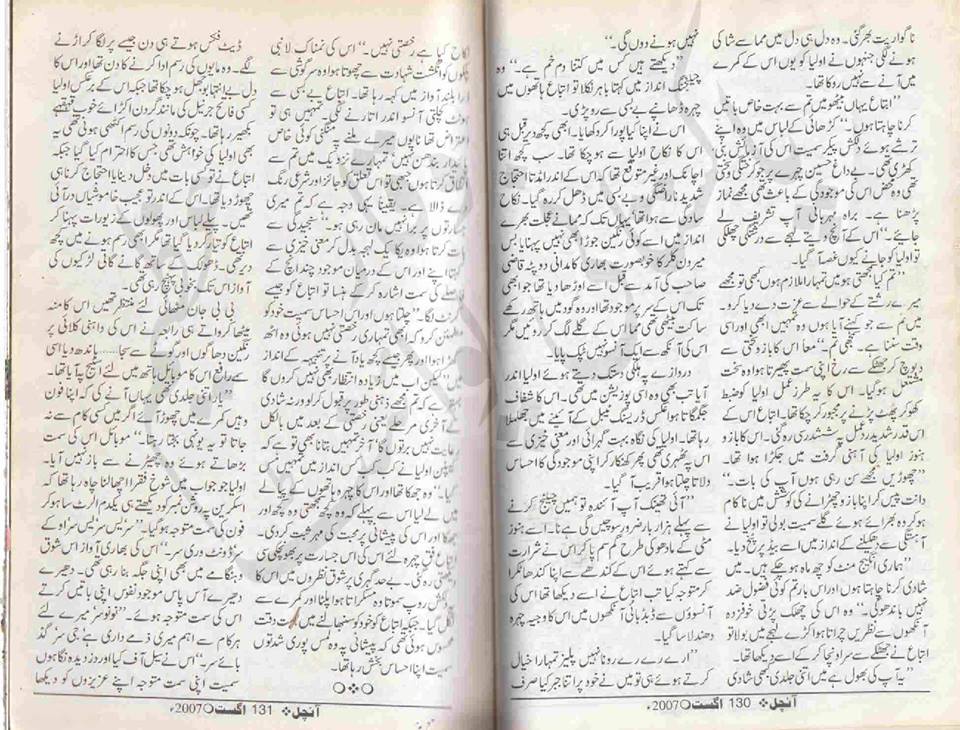 ناگواریت بھر گئی۔ وہ دل ہی دل میں مما سے شاکی
ہونے لگی جنہوں نے اولیا کو یوں اس کے کمرے
میں آنے سے نہیں روکا تھا۔
"ابتاع یہاں بیٹھو میں تم سے بہت خاص باتیں
کرنا چاہتا ہوں۔" کڑھائی کے لباس میں وہ اپنے
ترشے ہوئے دلکش پیکر سمیت اس کی آزمائش بنی
کھڑی تھی۔ بے داغ حسین چہرے پر جو کرختگی و سختی
تھی وہ محض اس کی موجودگی کے باعث تھی "مجھے نماز
پڑھنا ہے۔ براہ مہربانی آپ تشریف لے
جائیے۔" اس کے آنچ دیتے لہجے سے درشتگی چھلکی
تو اولیا کو جانے کیوں غصہ آ گیا۔
"تم کیا سمجھتی ہو میں تمہارا ملازم ہوں کبھی تو مجھے
میرے رشتے کے حوالے سے عزت دے دیا کرو۔
میں تم سے جو کہنے آیا ہوں وہ تمہیں ابھی اور اسی
وقت سننا ہے۔ سمجھی تم۔" معاً اس کا بازو سختی سے
دبوچ کر جھٹکے سے رخ اپنی سمت پھیرتا ہوا وہ سخت
مشتعل ہو گیا۔ اس کا یہ طرز عمل اولیا کو ضبط
کھو کر پھٹ پڑنے پر مجبور کر چکا تھا۔ ابتاع اس کے
اس قدر شدید ردعمل پر ششدر رہ گئی۔ اس کا بازو
ہنوز اولیا کی آہنی گرفت میں جکڑا ہوا تھا۔
"چھوڑیں مجھے نہیں سن رہی ہوں آپ کی بات۔"
دانت پیس کر اپنا بازو چھڑانے کی کوشش میں ناکام
ہو کر وہ بھرائے ہوئے گلے سمیت بولی تو اولیا نے
آہستگی سے دھکیلنے کے انداز میں اسے بیڈ پر پٹخ دیا۔
"ہماری انگیج منٹ کو چھ ماہ ہو چکے ہیں۔ میں
شادی کرنا چاہتا ہوں اور اس بار تم کوئی فضول ضد
نہیں باندھو گی۔" وہ اس کی چھلک پڑنی خوفزدہ
آنکھوں سے نظریں چراتا ہوا اکڑے لہجے میں بولا تو
ابتاع نے جھٹکے سے سر اونچا کر کے اسے دیکھا تھا۔
"یہ آپ کی بھول ہے میں اتنی جلدی بھی شادی
نہیں ہونے دوں گی۔"
"دیکھتے ہیں کس میں کتنا دم خم ہے۔" وہ
چیلنجنگ انداز میں کہتا باہر نکلا تو ابتاع ہاتھوں میں
چہرہ ڈھانپے بے بسی سے رو پڑی۔
اس نے اپنا کہا پورا کر دکھایا۔ ابھی کچھ دیر قبل ہی
اس کا نکاح اولیا سے ہو چکا تھا۔ سب کچھ اتنا
اچانک اور غیر متوقع تھا کہ اس کے اندر اٹھتا احتجاج
شدید ناراضگی و بے بسی میں ڈھل کر رہ گیا۔ نکاح
سادگی سے ہوا تھا یہاں تک کہ مما نے عجلت بھرے
انداز میں اسے کوئی رنگین جوڑا بھی نہیں پہنایا بس
میرون کلر کا خوبصورت بھاری کامدانی دوپٹہ قاضی
صاحب کی آمد سے قبل اسے اوڑھا دیا تھا جو ابھی
تک اس کے سر پر موجود تھا اور وہ گود میں ہاتھ رکھے
ساکت بیٹھی تھی مما اس کے گلے لگ کر روئیں مگر
اس کی آنکھ سے ایک آنسو نہیں ٹپک پایا۔
دروازے پہ ہلکی دستک دیتے ہوئے اولیا اندر
آیا تب بھی وہ اسی پوزیشن میں بیٹھی تھی۔ اس کا شفاف
جگمگاتا ہوا عکس ڈریسنگ ٹیبل کے آئینے میں جھلملا
رہا تھا۔ اولیا کی نگاہ بہت گہرائی اور معنی خیزی سے
اس پہ ٹھہری تھی پھر کھنکار کر اپنی موجودگی کا احساس
دلاتا چلتا ہوا قریب آ گیا۔
"آئی تھینک آپ آئندہ تو ہمیں چیلنج کرنے
سے پہلے ہزار بار ضرور سوچیں گی ہے نا۔ اسے ہنوز
مٹی کے مادھو کی طرح گم سم پا کر اس نے شرارت
سے کہتے ہوئے اس کے کندھے سے اپنا کندھا ٹکرا
کر متوجہ کیا تب ابتاع نے اسے دیکھا تھا اس کی
آنسوؤں سے ڈبڈبائی آنکھوں میں اس کا وجیہہ چہرہ
دھندلا سا گیا۔
"ارے رے رے رونا نہیں پلیز تمہارا خیال
کرتے ہوئے ہی تو میں نے خود پر اتنا جبر کیا صرف
آنچل ❖ 130 اگست ○ 2007ء
نکاح کیا ہے رخصتی نہیں۔" اس کی نمناک لانبی
پلکوں کو انگشت شہادت سے چھوتا ہوا وہ سرگوشی سے
ذرا بلند آواز میں کہہ رہا تھا۔ ابتاع بے بسی سے
ہونٹ کچلتی آنسو اندر اتارنے لگی۔ "تمہیں یہی تو
اعتراض تھا نا یوں میرے ملنے پہ منگنی کوئی خاص
پائدار بندھن نہیں تمہارے نزدیک میں تم سے
اتفاق کرتا ہوں جبھی تو اس تعلق کو جائز اور شرعی رنگ
دے ڈالا ہے۔ یقیناً یہی وجہ ہے کہ تم میری
جسارتوں پر برا نہیں مان رہی ہو۔" سنجیدگی سے
بات کرتا ہوا وہ یکایک لہجہ بدل کر معنی خیزی سے
کہتا اپنے اور اس کے درمیان موجود چند انچ کے
فاصلے کی سمت اشارہ کر کے ہنسا تو ابتاع کو جیسے
کرنٹ لگا۔ "چلتا ہوں اور اس احساس سمیت خود کو
مطمئن کرو کہ ابھی تمہاری رخصتی نہیں ہوئی وہ اٹھ
کھڑا ہوا اور پھر جیسے کچھ یاد آنے پر تنبیہہ کے انداز
میں "لیکن اب میں زیادہ انتظار بھی نہیں کروں گا
بہتر ہے کہ تم مجھے ذہنی طور پر قبول کر لو ورنہ شادی
کے آخری مرحلے یعنی رخصتی کے بعد میں بالکل
رعایت نہیں برتوں گا آخر تمہیں ہنانا بھی تو ہے کہ
اولیا نے کس کس انداز میں تمہیں مس
کیا۔" وہ جھکا تھا اور اس کا چہرہ ہاتھوں کے پیالے
میں لے لیا اس سے پہلے کہ وہ کچھ سمجھتی وہ کچھ اور
جھکا اور اس کی پیشانی پر محبت کی مہر ثبت کر دی۔
ابتاع فق چہرہ لئے اس کی اس جسارت پر بھونچکی سی
بیٹھی رہ گئی۔ بے حد گہری پر شوق نظروں میں اس کا
دلکش روپ سموتا وہ مسکراتا ہوا پلٹا اور کمرے سے
نکل گیا۔ جبکہ ابتاع کو خود کو سنبھالنے میں بہت دقت
محسوس ہوئی تھی کہ پیشانی پہ وہ لمس پوری شدتوں
سمیت اپنا احساس بخش رہا تھا۔
○❖○
ڈیٹ فکس ہوتے ہی دن جیسے پر لگا کر اڑنے
لگے۔ وہ مایوں کی رسم ادا کرنے کا دن تھا اور اس کا
دل بے انتہا بوجھل ہو چکا تھا جبکہ اس کے برعکس اولیا
کسی فاتح جرنیل کی مانند گردن اکڑائے خوب قہقہے
بکھیر رہا تھا۔ چونکہ دونوں کی رسم اکٹھی ہوئی تھی یہ
بھی اولیا کی خواہش تھی جس کا احترام کیا گیا جبکہ
ابتاع نے تو کسی بات میں دخل دینا یا احتجاج کرنا ہی
چھوڑ دیا تھا۔ اس کے اندر تو عجیب خاموشیاں در آئی
تھیں۔ پیلے لباس اور پھولوں کے زیورات پہنا کر
ابتاع کو تیار کر دیا گیا تھا مگر ابھی رسم ہونے میں کچھ
دیر تھی۔ ڈھولک کے ساتھ گانے گاتی لڑکیوں کی
آواز اس تک بخوبی پہنچ رہی تھی۔
بی بی جان مٹھائی لئے منتظر تھیں اس کا منہ
میٹھا کرواتے ہی رانیہ نے اس کی داہنی کلائی پر
رنگین دھاگوں اور گوٹے سے سجا...... باندھ دیا اسی
سے رافع اس کا موبائل ہاتھ میں لئے اسٹیج پہ آیا تھا۔
"یار اتنی جلدی بھی یہاں آنے کی کہ اپنا فون
وہیں کمرے میں چھوڑ آئے اگر میں کسی کام سے نہ
جاتا تو یہ یونہی بجتا رہتا۔" موبائل اس کی سمت
بڑھاتے ہوئے وہ چھیڑنے سے باز نہیں آیا۔
اولیا جو جواب میں شوخ فقرا اچھالنا چاہ رہا تھا کہ
اسکرین پر روشن نمبر کو دیکھتے ہی یکدم الرٹ سا ہو کر
فون کی سمت متوجہ ہو گیا۔ "سر یس سر یس سر او کے
سر ڈونٹ وری سر۔" اس کی بھاری آواز اس شوق
و ہنگامے میں بھی اپنی جگہ بنا رہی تھی۔ دھیرے
دھیرے آس پاس موجود نفوس اپنی باتیں کرتے
اس کی سمت متوجہ ہوئے۔ "نو نو سر میرے لئے
ہر کام سے اہم میری ذمے داری ہے جی سر' گڈ
بائے سر۔" اس نے سیل آف کیا اور دزدیدہ نگاہوں
سمیت اپنی سمت متوجہ اپنے عزیزوں کو دیکھا
آنچل ❖ 131 اگست ○ 2007ء